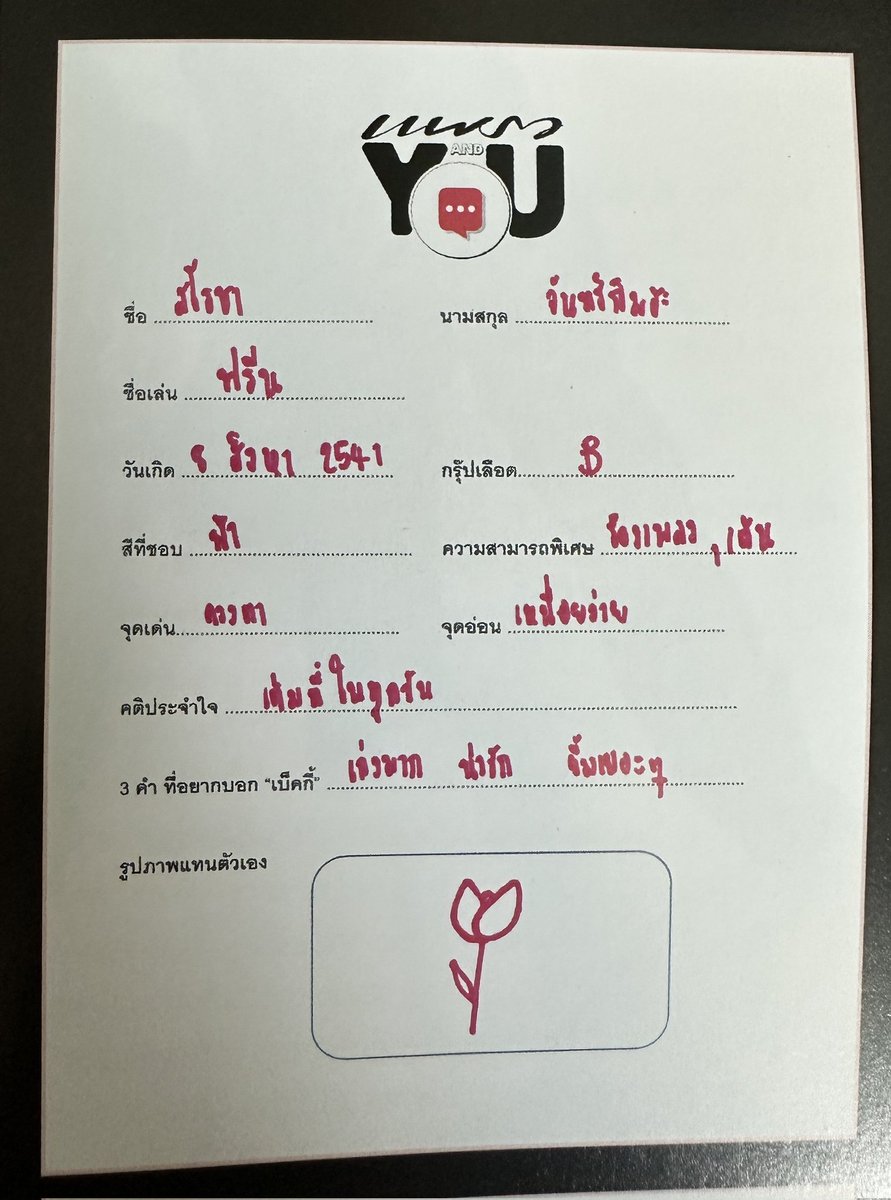 แพรว
AND
YOU
ชื่อ สโรชา นามสกุล จันทร์กิมฮะ
ชื่อเล่น ฟรีน
วันเกิด 8 สิงหา 2541 กรุ๊ปเลือด B
สีที่ชอบ ฟ้า ความสามารถพิเศษ ร้องเพลง , เต้น
จุดเด่น ดวงตา จุดอ่อน เหนื่อยง่าย
คติประจำใจ เต็มที่ ในทุกวัน
3 คำ ที่อยากบอก “เบ็คกี้” เก่งมาก น่ารัก ยิ้มเยอะๆ
รูปภาพแทนตัวเอง